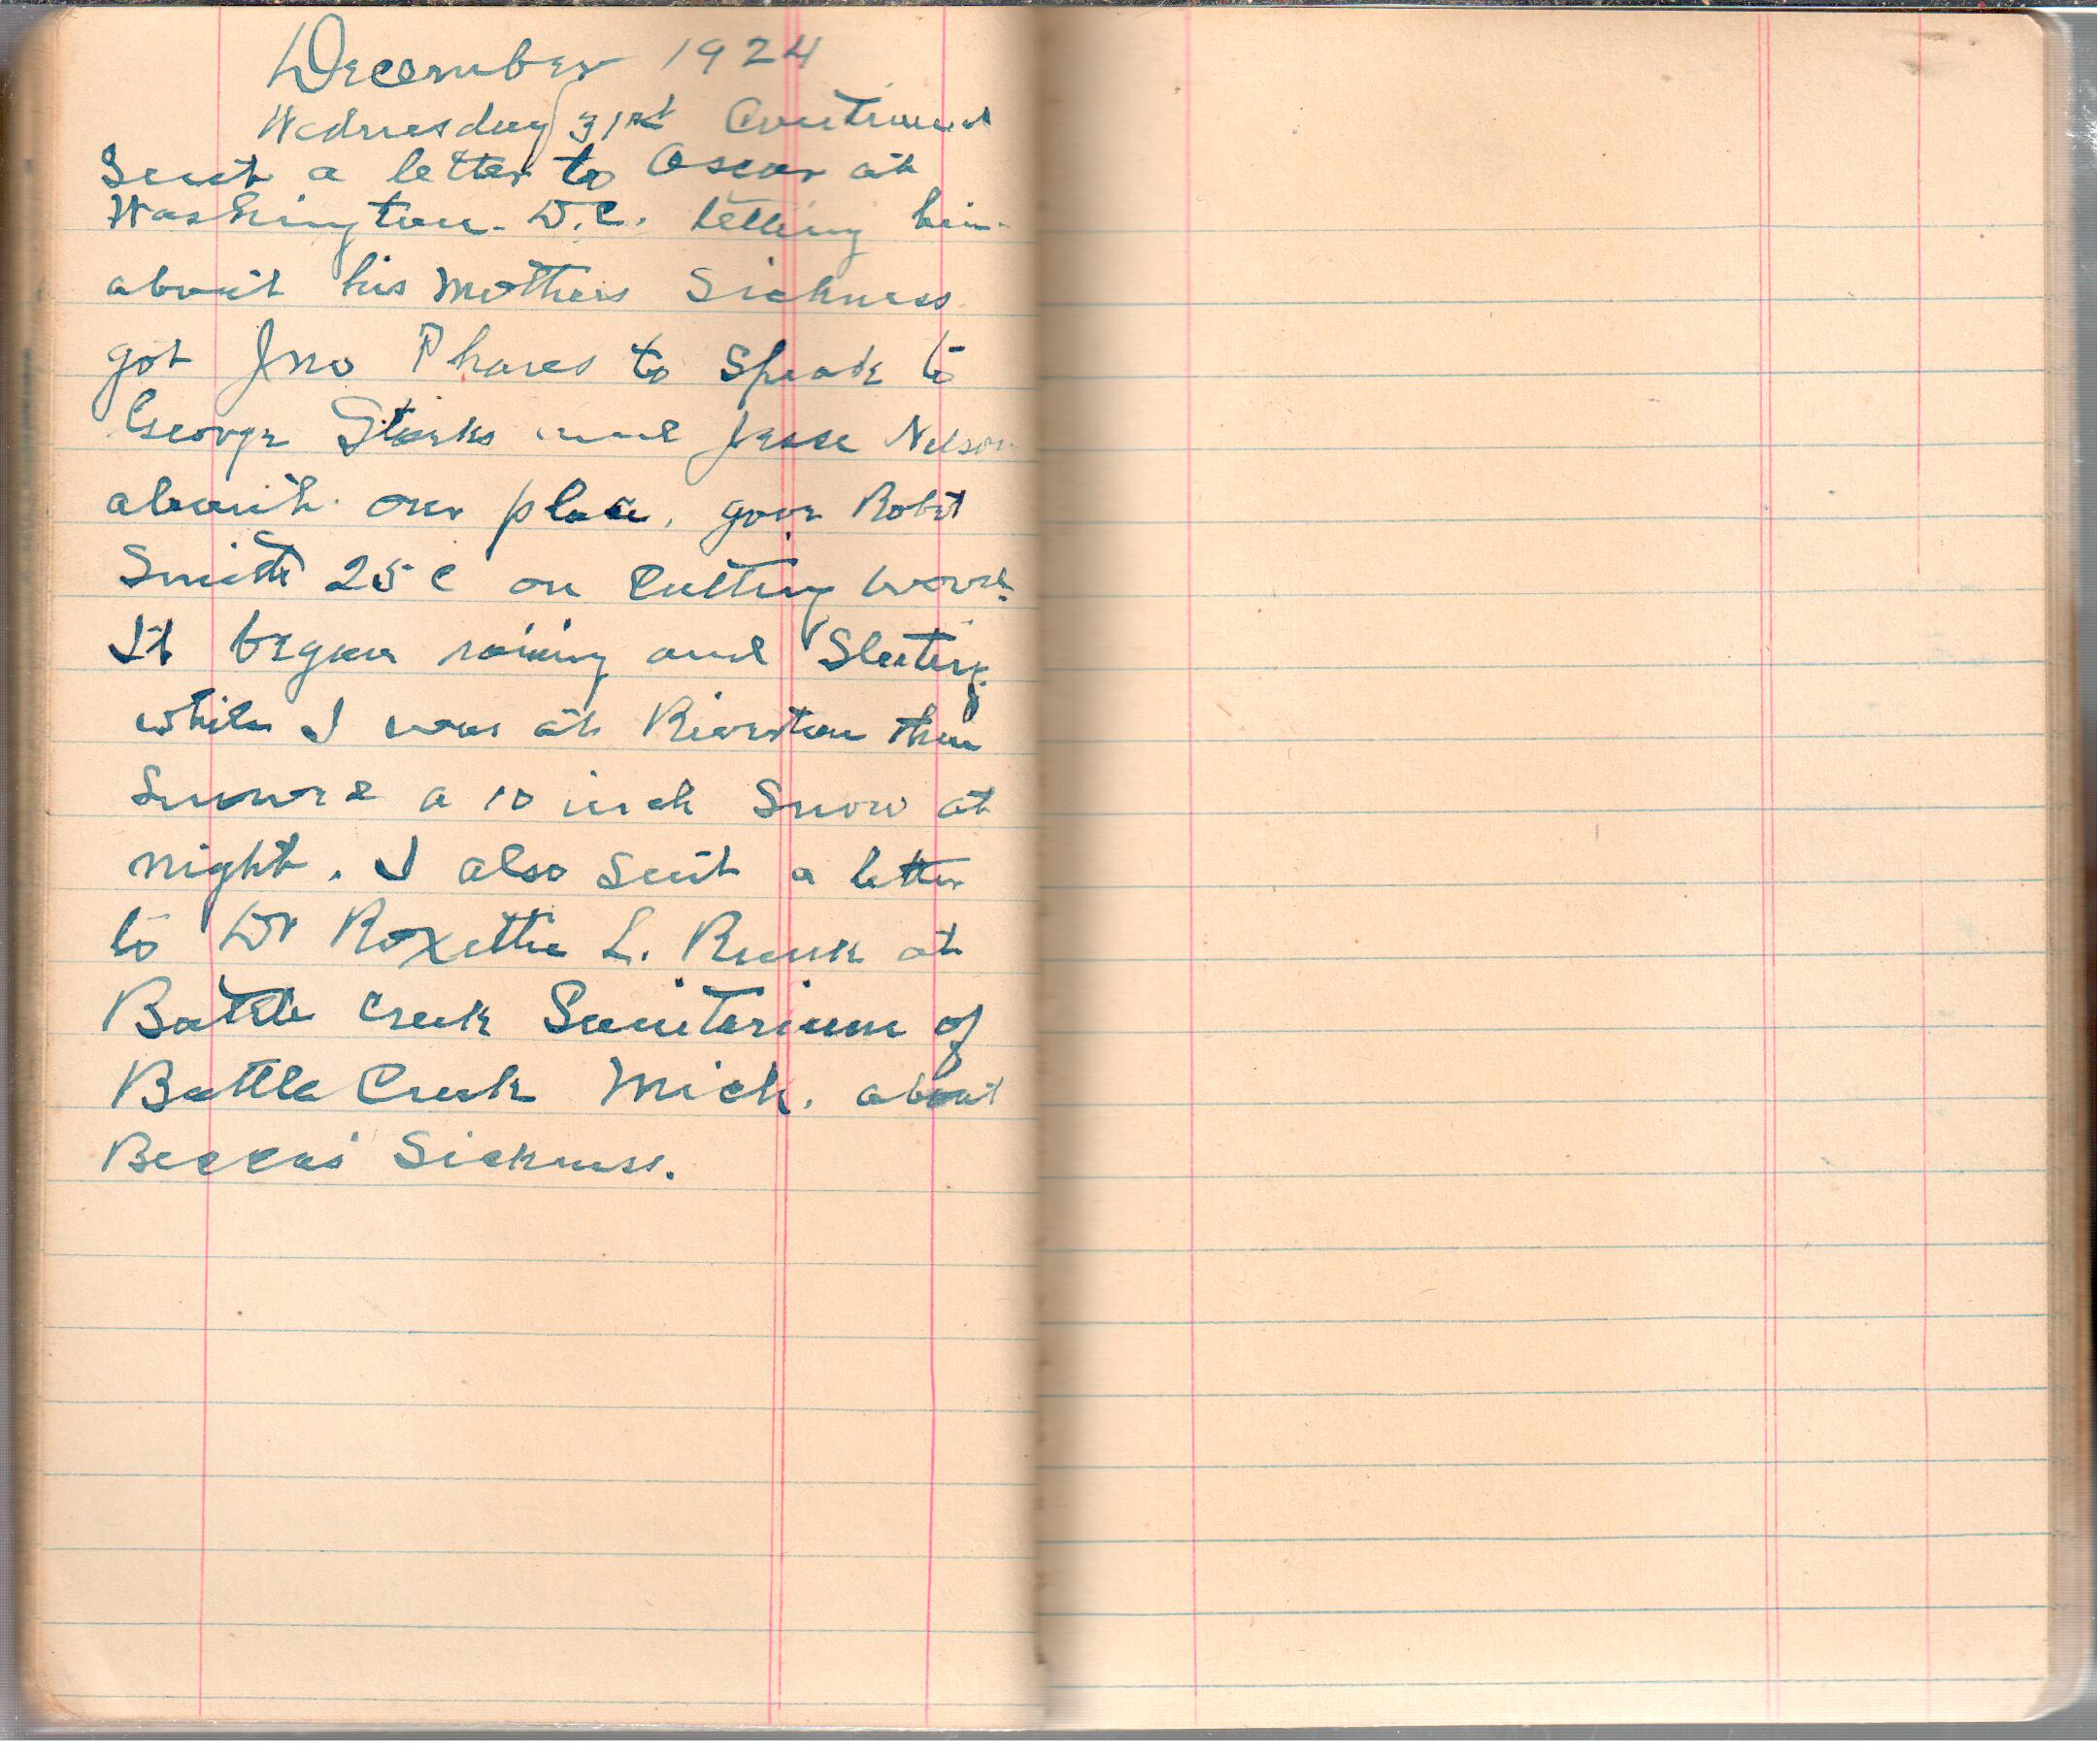 December 1924
Wednesday 31st Continued
Sent a letter to Oscar at
Washington. D.C. telling him
about his Mothers Sickness
got Jno Phares to Speak to
George Starks and Jesse Nelson
about our place. gave Robt
Smith 25c on Cutting wood.
It began raining and Sleeting
while I was at then
Snowed a 10 inch Snow at
night. I also Sent a letter
to Dr Roxettie L. Runk at
Battle Creek Sanitarium of
Battle Creek Mich. about
Beccas' Sickness.